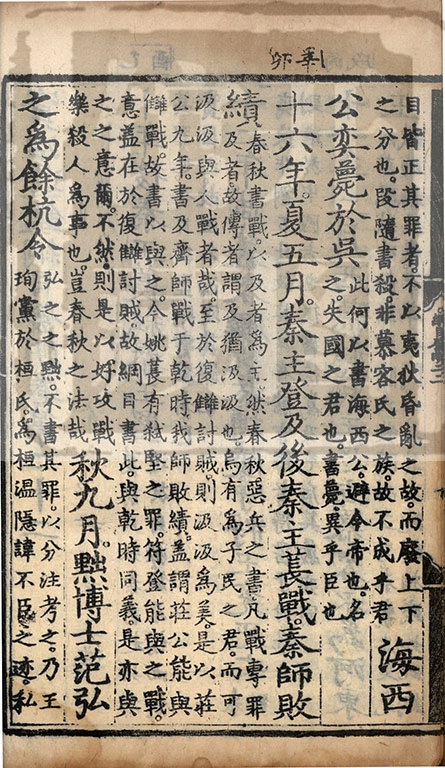 目皆正其罪者。不以夷狄昏亂之故。而廢上下
之分也。段隨書殺。非慕容氏之族。故不成乎君
海西
公奕薨於吳
此何以書海西公。避今帝也。名
之。失國之君也。書薨。異乎臣也
十六年。夏五月。秦主登及後秦主萇戰。秦師敗
績
春秋書戰。以及者為主。然春秋惡兵之書。凡戰專罪
及者。故傳者謂及猶汲汲也。烏有為子民之君。而可
汲汲與人戰者哉。至於復讎討賊。則汲汲為美。是以莊
公九年。書及齊師戰于乾時。我師敗績。蓋謂莊公能與
讎戰。故書以與之。今姚萇有弒堅之罪。符登能與之戰。
意蓋在於復讎討賊。故綱目書此。與乾時同義。是亦與
之之意爾。不然則是以好攻戰
樂殺人為事也。豈春秋之法哉
秋九月。黜博士范弘
之為餘杭令
弘之之黜。不書其罪。以分注考之。乃王
珣黨於桓氏。為桓溫隱諱不臣之迹。私